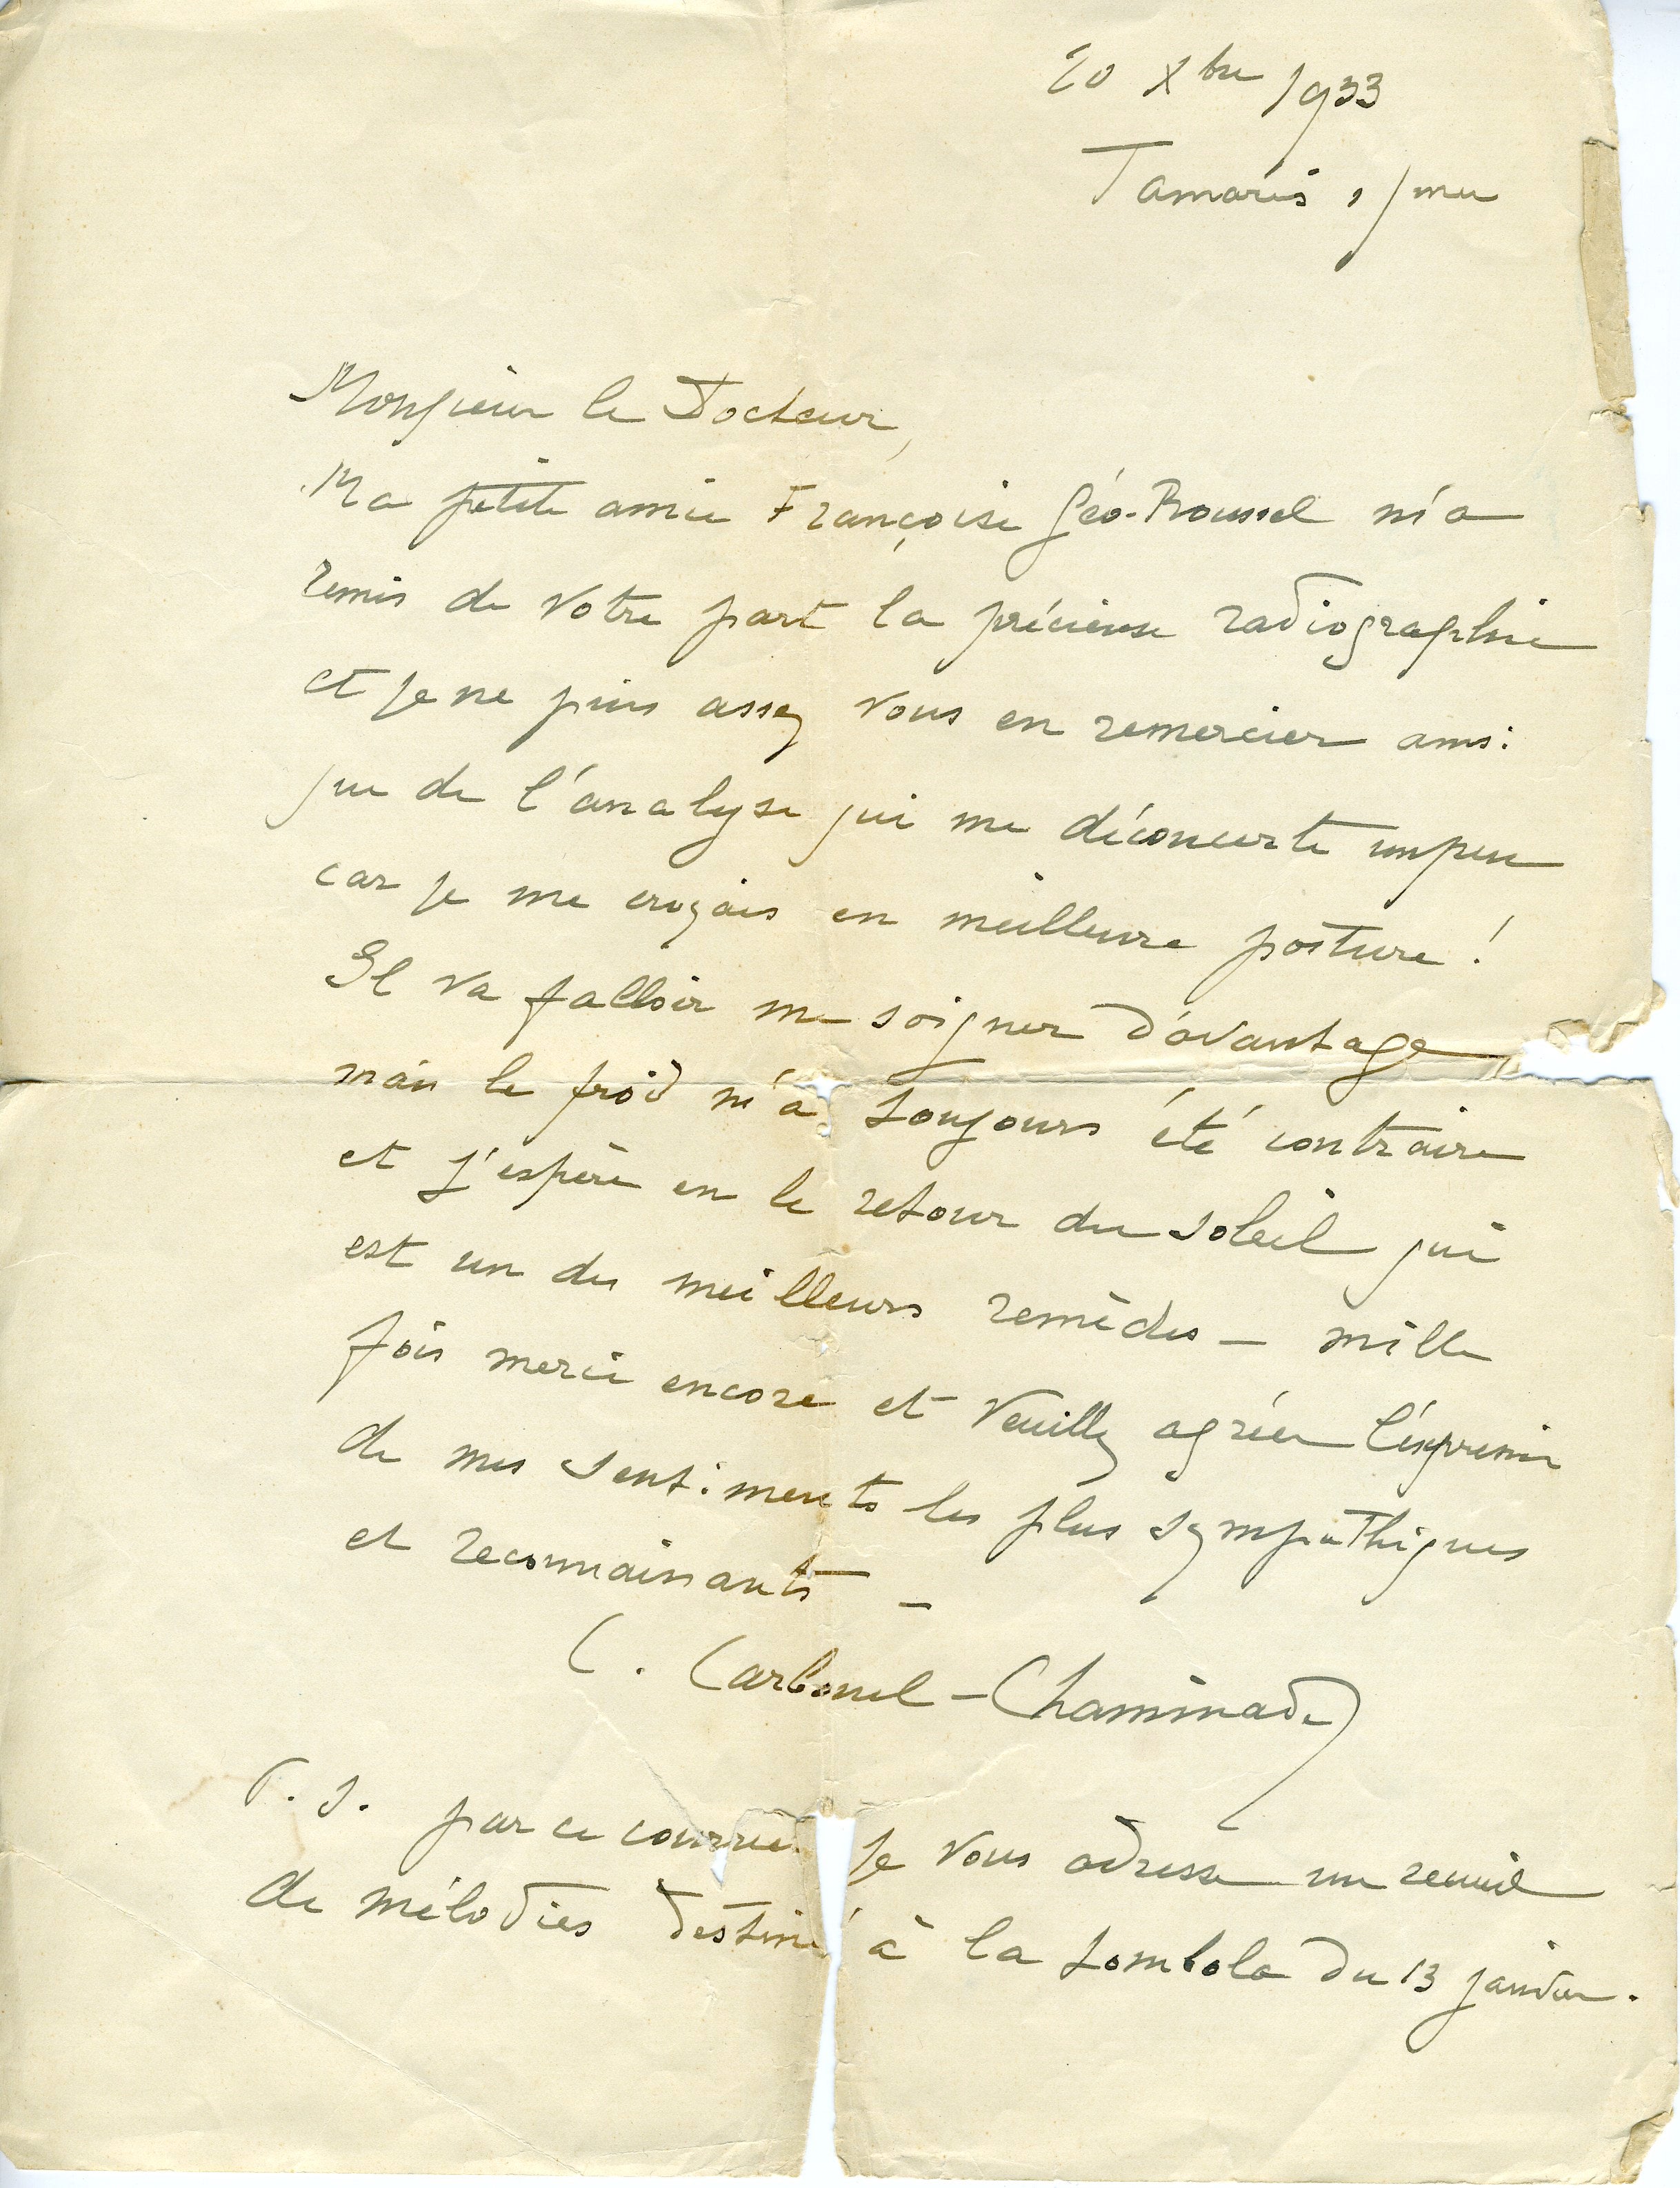 20 Xbre 1933
Tamaris s/mer
Monsieur le Docteur,
Ma petite amie Françoise Géo-Roussel m'a
remis de votre part la précieuse radiographie
et je ne puis assez vous en remercier ainsi
que de l'analyse qui me déconcerte un peu
car je me croyais en meilleure posture !
Il va falloir me soigner d'avantage
mais le froid m'a toujours été contraire
et j'espère en le retour du soleil qui
est un des meilleurs remèdes — mille
fois merci encore et veuillez agréer l'expression
de mes sentiments les plus sympathiques
et reconnaissants —
C. Carbonel-Chaminade
P.S. par ce courrier je vous adresse un recueil
de mélodies destiné à la tombola du 13 janvier.